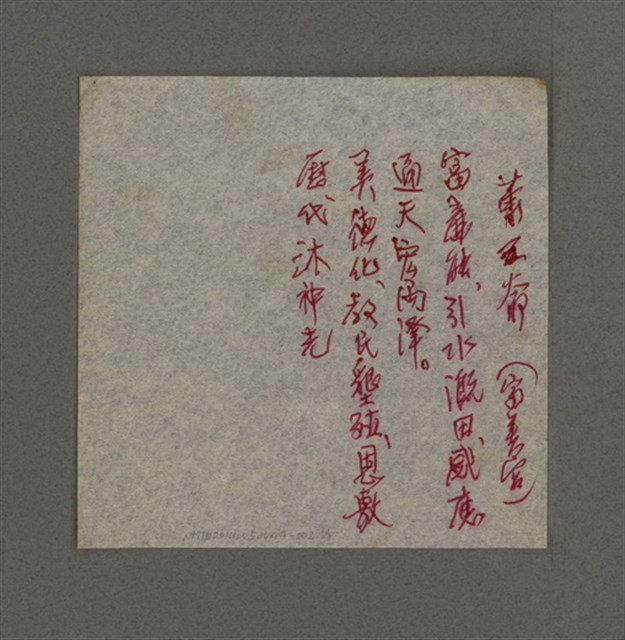 蕭王爺（富美宮）
富庶能、引水溉田、感應
通天官雨澤。
美德化、教民墾殖、恩敷
曆代沐神光